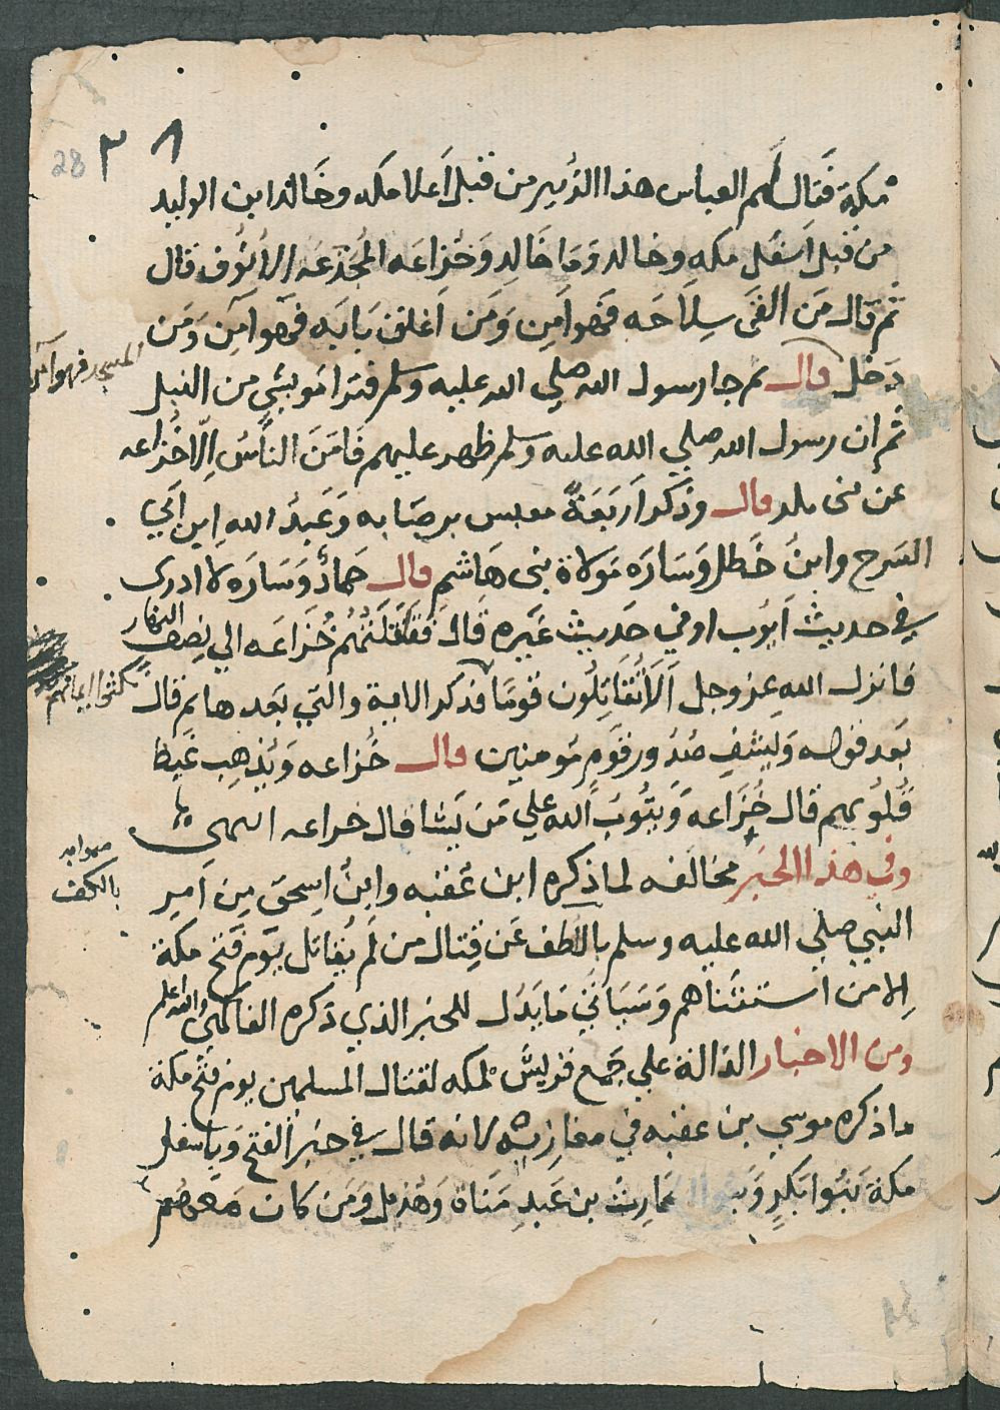 ٢٨
28
مكة فقال لهم العباس هذا الزبير من قبل أعلا مكه وخالد ابن الوليد
من قبل أسفل مكه وخالد وما خالد وخزاعه المجذعه الأنوف قال
ثم قال من القى سلاحه فهوآمن ومن اغلق بابه فهوآمن ومن
دخل المسجد فهوآمن
قال ثم جا رسول الله صلي الله عليه وسلم فتراموبشي من النبل
ثم ان رسول الله صلي الله عليه وسلم ظهر عليهم فامن الناس الا خزاعه
عن بنى بكر قال وذكر اربعة مقيس بن صبابه وعبد الله ابن ابي
السرح وابن خطل وساره مولاة بنى هاشم قال حماد وساره لا ادرى
في حديث ايوب اوفي حديث غيره قال فقتلتهم خزاعه الي نصف النهار
فانزل الله عز وجل ألا تقاتلون قوما نكثوا ايمانهم فذكر الاية والتي بعدها ثم قال
بعد قوله وليشف صدور قوم مومنين قال خزاعه ويذهب غيظ
قلوبهم قال خزاعة ويتوب الله علي من يشا قال خزاعه انتهى
وفي هذا الخبر مخالفه لما ذكره ابن عقبه وابن اسحق من امر
النبي صلي الله عليه وسلم بالكف عن قتال من لم يقاتل يوم فتح مكة
بالكف
الا من استثناهم وسياتي مايدل للخبر الذي ذكره الفاكهى والله اعلم
ومن الاخبار الدالة علي جمع قريش بمكه لقتال المسلمين يوم فتح مكة
ماذكره موسي بن عقبه في مغازيه لانه قال في خبر الفتح وباسفل
مكة بنوا بكر حارث بن عبد مناة وهذيل ومن كان معهم